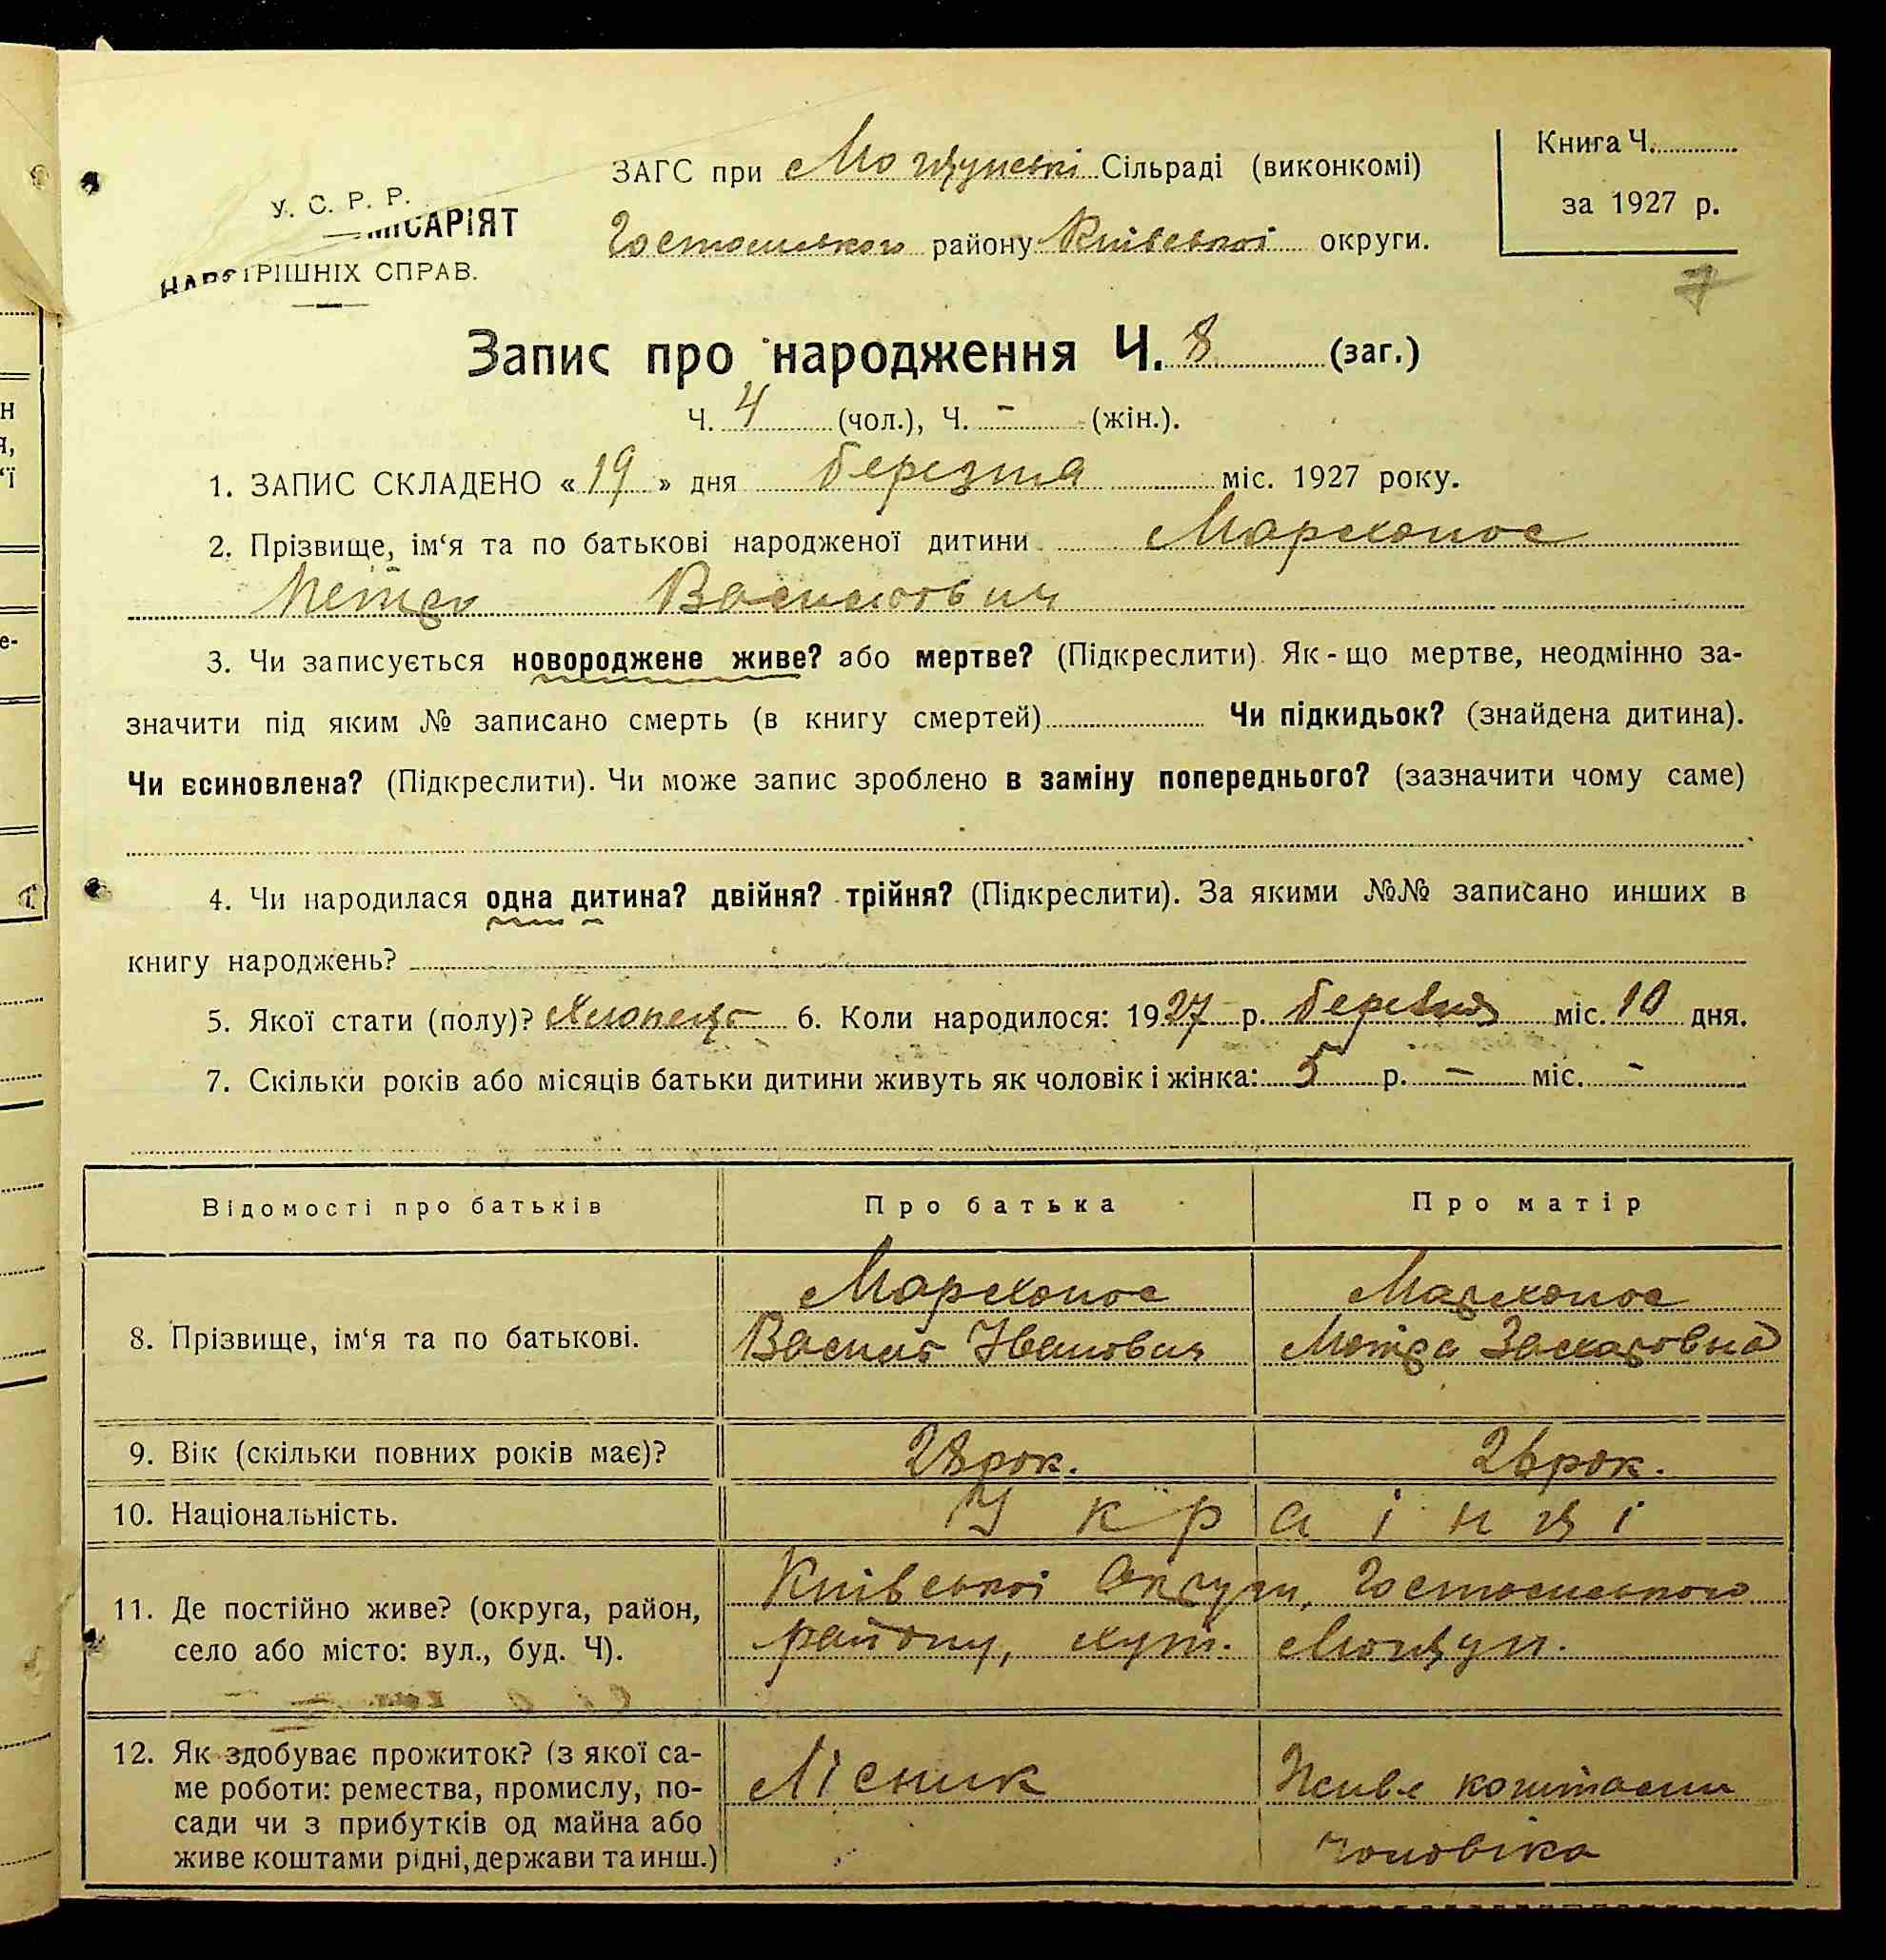 У. С. Р. Р.
МІСАРІЯТ
ТРІШНІХ СПРАВ.
ЗАГС при Мощунські Сільраді (виконкомі)
Гостомського району Київської округи.
Книга Ч.
за 1927 р.
7
Запис про народження Ч. 8 (заг.)
Ч. 4 (чол.), Ч. - (жін.).
1. ЗАПИС СКЛАДЕНО « 19 » дня березня міс. 1927 року.
2. Прізвище, ім‘я та по батькові народженої дитини
Петро Василювич
3. Чи записується новороджене живе? або мертве? (Підкреслити). Як-що мертве, неодмінно за-
значити під яким № записано смерть (в книгу смертей) Чи підкидьок? (знайдена дитина).
Чи всиновлена? (Підкреслити). Чи може запис зроблено в заміну попереднього? (зазначити чому саме)
4. Чи народилася одна дитина? двійня? трійня? (Підкреслити). За якими №№ записано инших в
книгу народжень?
5. Якої стати (полу)? Хлопець 6. Коли народилося: 1927 р. березня міс. 10 дня.
7. Скільки років або місяців батьки дитини живуть як чоловік і жінка: 5 р. - міс. -
Відомості про батьків Про батька Про матір
8. Прізвище, ім‘я та по батькові.
Василь Іванович
Захаровна
9. Вік (скільки повних років має)? 28 рок. 26 рок.
10. Національність. Українці
11. Де постійно живе? (округа, район,
село або місто: вул., буд. Ч).
Київської Округи, Гостомського
району, хут. Мощун.
12. Як здобуває прожиток? (з якої са-
ме роботи: ремества, промислу, по-
сади чи з прибутків од майна або
живе коштами рідні, держави та инш.)
Лісник
Живе коштами
чоловіка